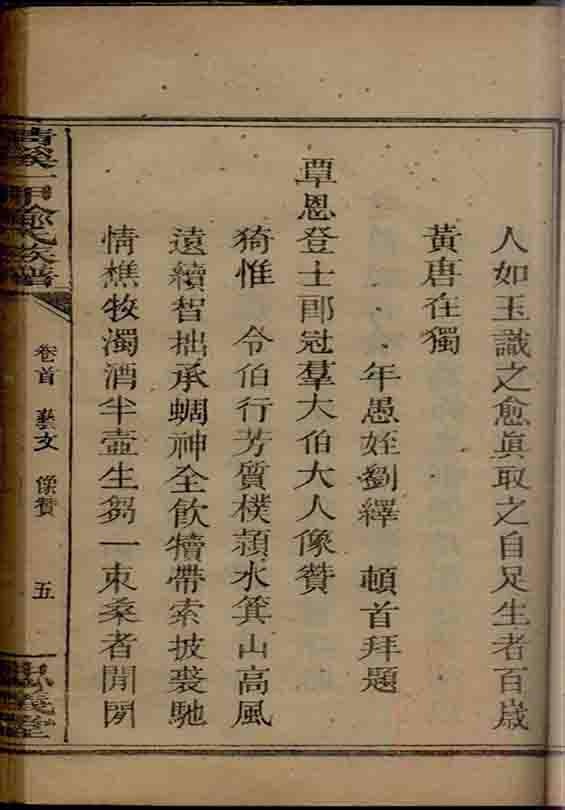 人如玉識之愈眞取之自足生者百歲
黃唐在獨
年愚姪劉繹 頓首拜題
覃恩登士郎冠羣大伯大人像贊
猗惟 令伯行芳質樸潁水箕山高風
遠續智拙承蜩神全飮犢帶索披裘馳
情樵牧濁酒半壺生芻一束桑者閒閒
一甲 氏族譜
卷首 藝文 像贊 五
義堂